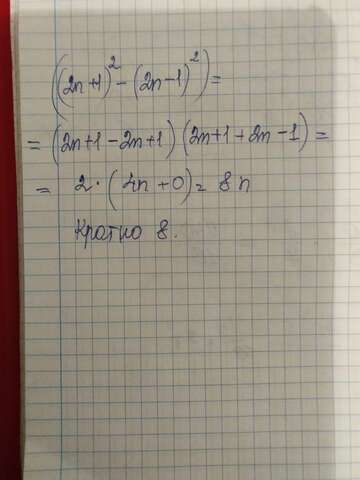 ((2n+1)²-(2n-1)²)=
=(2n+1-2n+1)(2n+1+2n-1)=
= 2·(4n+0)= 8n
Кратно 8.